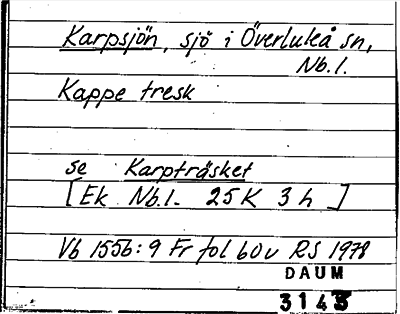 Karpsjön, sjö i Överluleå sn,
Nb.l.
Kappe tresk
se Karpträsket
[Ek Nb.l. 25K 3h]
Vb 1556:9 Fr fol 60v RS 1978
DAUM
3143